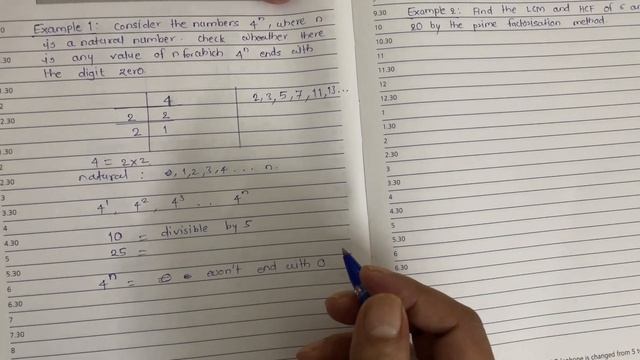 Example 1: Consider the numbers 4ⁿ, where n
is a natural number. Check wheather there
is any value of n for which 4ⁿ ends with
the digit zero.
4
2 2
2 1
2, 3, 5, 7, 11, 13...
4 = 2x2
natural : 0, 1, 2, 3, 4 ... n.
4¹, 4², 4³ ... 4ⁿ
10 = divisible by 5
25 =
4ⁿ = won't end with 0
.30
1.30
2
2.30
1.30
2
2.30
3
3.30
4
4.30
5
5.30
6
6.30
7
7.30
8
9.30 Example 2: Find the LCM and HCF of 6 an
10 20 by the prime factorisation method
10.30
11
11.30
12
12.30
1
1.30
2
2.30
3
3.30
4
4.30
5
5.30
6
6.30
is changed from 5 t